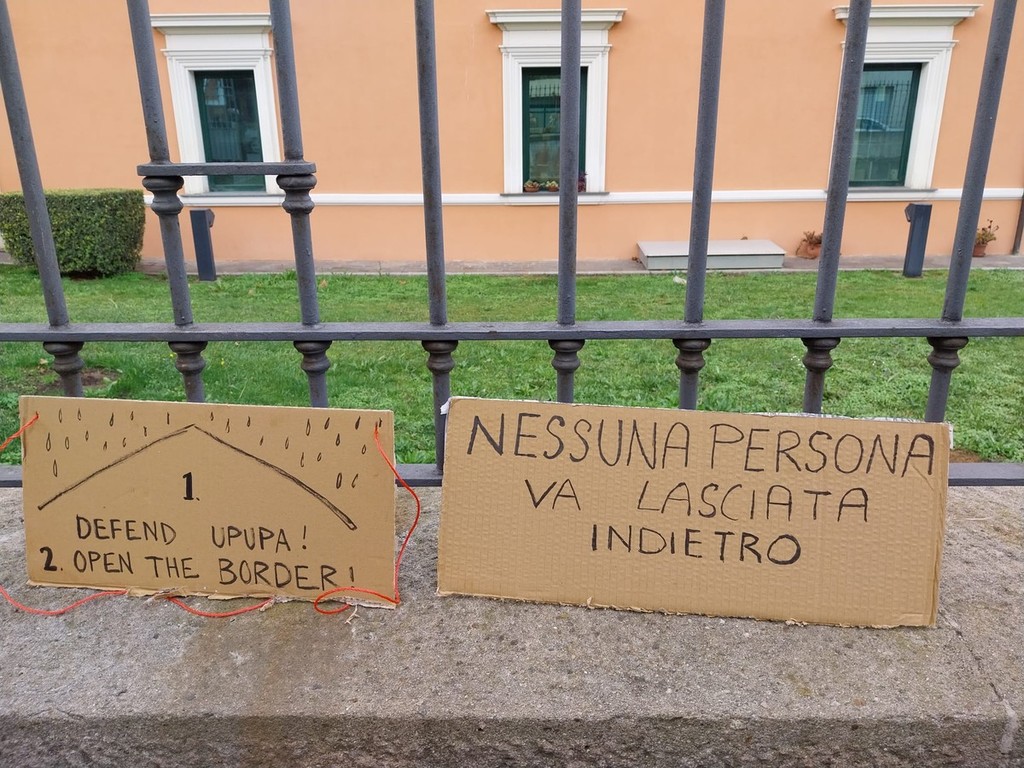 1.
DEFEND UPUPA!
2. OPEN THE BORDER!
NESSUNA PERSONA
VA LASCIATA
INDIETRO